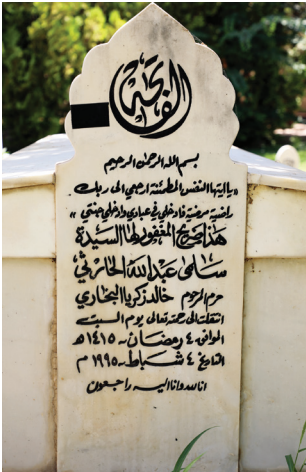 الفاتحة
بسم الله الرحمن الرحيم
«يا ايتها النفس المطمئنة ارجعي الى ربك
راضية مرضية فادخلي في عبادي وادخلي جنتي»
هذا ضريح المغفور لها السيدة
سلمى عبد الله الحارثي
حرم المرحوم خالد زكريا البخاري
انتقلت الى رحمته تعالى يوم السبت
الموافق ٤ رمضان - ١٤١٥ هـ
التاريخ ٤ شباط - ١٩٩٥ م
انا لله وانا اليه راجعون